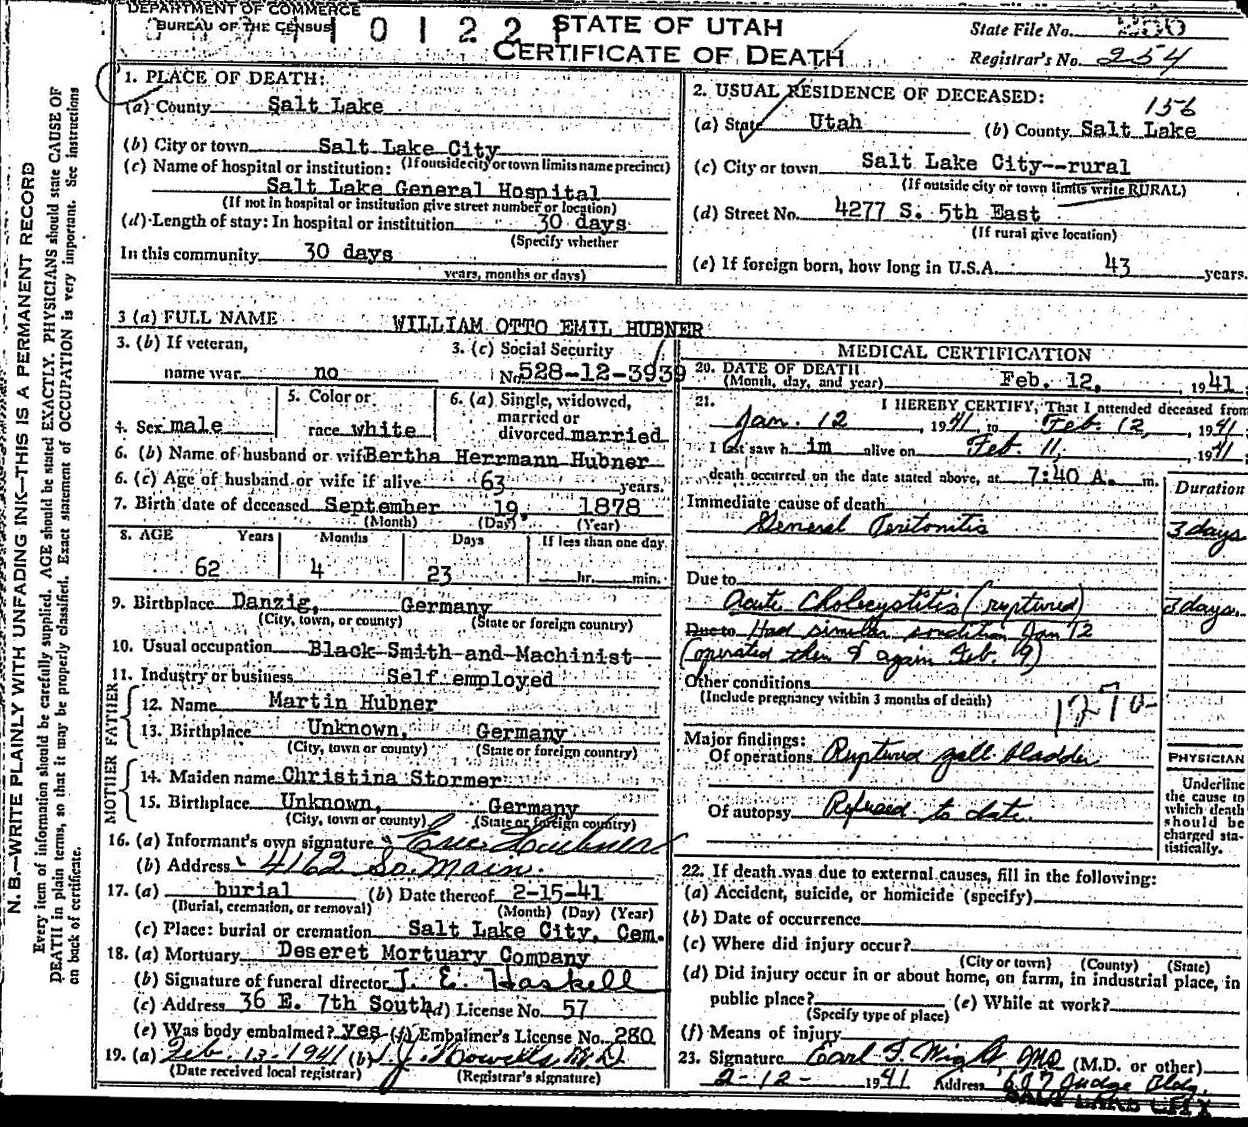 DEPARTMENT OF COMMERCE
BUREAU OF THE CENSUS
0 1 2 2
STATE OF UTAH
CERTIFICATE OF DEATH
State File No.
Registrar's No. 254
1. PLACE OF DEATH:
(a) County Salt Lake
(b) City or town Salt Lake City
(If outside city or town limits name precinct)
(c) Name of hospital or institution:
Salt Lake General Hospital
(If not in hospital or institution give street number or location)
(d) Length of stay: In hospital or institution 30 days
(Specify whether
In this community 30 days
years, months or days)
2. USUAL RESIDENCE OF DECEASED:
156
(a) State Utah (b) County Salt Lake
(c) City or town Salt Lake City--rural
(If outside city or town limits write RURAL)
(d) Street No. 4277 S. 5th East
(If rural give location)
(e) If foreign born, how long in U.S.A. 43 years.
3 (a) FULL NAME WILLIAM OTTO EMIL HUBNER
3. (b) If veteran,
name war no
3. (c) Social Security
No. 528-12-3939
4. Sex male
5. Color or
race white
6. (a) Single, widowed,
married or
divorced married
6. (b) Name of husband or wife Bertha Herrmann Hubner
6. (c) Age of husband or wife if alive 63 years.
7. Birth date of deceased September 19, 1878
(Month) (Day) (Year)
8. AGE Years Months Days If less than one day
62 4 23 hr. min.
9. Birthplace Danzig, Germany
(City, town, or county) (State or foreign country)
10. Usual occupation Black Smith and Machinist
11. Industry or business Self employed
FATHER
12. Name Martin Hubner
13. Birthplace Unknown, Germany
(City, town or county) (State or foreign country)
MOTHER
14. Maiden name Christina Stormer
15. Birthplace Unknown, Germany
(City, town or county) (State or foreign country)
16. (a) Informant's own signature Huebner
(b) Address 4162 So. Main.
17. (a) burial (b) Date thereof 2-15-41
(Burial, cremation, or removal) (Month) (Day) (Year)
(c) Place: burial or cremation Salt Lake City, Cem.
18. (a) Mortuary Deseret Mortuary Company
(b) Signature of funeral director J. E. Haskell
(c) Address 36 E. 7th South (d) License No. 57
(e) Was body embalmed? yes (f) Embalmer's License No. 280
19. (a) Feb. 13-1941 (b) Howells M D
(Date received local registrar) (Registrar's signature)
MEDICAL CERTIFICATION
20. DATE OF DEATH
(Month, day, and year) Feb. 12, 1941
21. I HEREBY CERTIFY, That I attended deceased from
Jan. 12, 1941, to Feb. 12, 1941.
I last saw him alive on Feb. 11, 1941
death occurred on the date stated above, at 7:40 A. m.
Duration
Immediate cause of death
General Peritonitis 3 days
Due to
Acute Cholecystitis (ruptured) 3 days.
Due to Had similar condition Jan 12
(operated then & again Feb. 9)
Other conditions
(Include pregnancy within 3 months of death)
Major findings:
Of operations Ruptured gall bladder
Of autopsy Refused to date.
PHYSICIAN
Underline
the cause to
which death
should be
charged sta-
tistically.
22. If death was due to external causes, fill in the following:
(a) Accident, suicide, or homicide (specify)
(b) Date of occurrence
(c) Where did injury occur?
(City or town) (County) (State)
(d) Did injury occur in or about home, on farm, in industrial place, in
public place? (e) While at work?
(Specify type of place)
(f) Means of injury
23. Signature Earl (M.D. or other)
2-12- 1941 Address Judge Bldg.
SALT LAKE CITY
N. B.—WRITE PLAINLY WITH UNFADING INK—THIS IS A PERMANENT RECORD
Every item of information should be carefully supplied. AGE should be stated EXACTLY. PHYSICIANS should state CAUSE OF
DEATH in plain terms, so that it may be properly classified. Exact statement of OCCUPATION is very important. See instructions
on back of certificate.